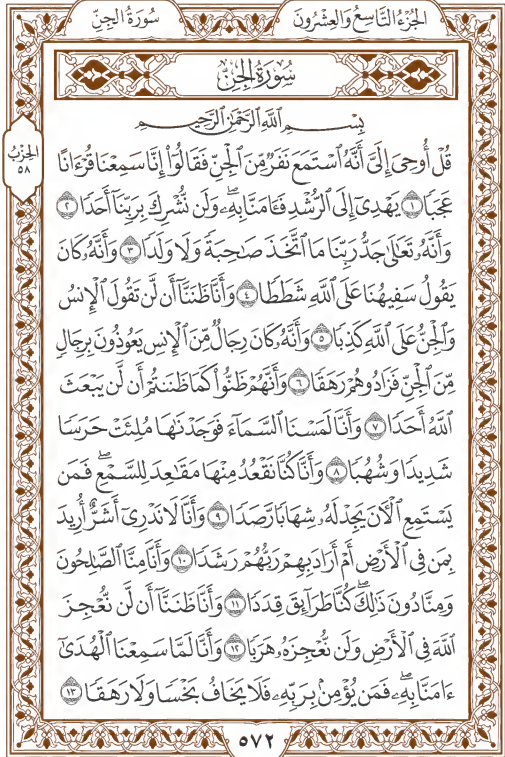 سُورَةُ الجِنِّ
الجُزْءُ التَّاسِعُ وَالعِشْرُونَ
سُورَةُ الجِنِّ
بِسْمِ ٱللَّهِ ٱلرَّحْمَٰنِ ٱلرَّحِيمِ
الحِزْبُ
٥٨
قُلْ أُوحِىَ إِلَىَّ أَنَّهُ ٱسْتَمَعَ نَفَرٌ مِّنَ ٱلْجِنِّ فَقَالُوٓا۟ إِنَّا سَمِعْنَا قُرْءَانًا
عَجَبًا ١ يَهْدِىٓ إِلَى ٱلرُّشْدِ فَـَٔامَنَّا بِهِۦۖ وَلَن نُّشْرِكَ بِرَبِّنَآ أَحَدًا ٢
وَأَنَّهُۥ تَعَٰلَىٰ جَدُّ رَبِّنَا مَا ٱتَّخَذَ صَٰحِبَةً وَلَا وَلَدًا ٣ وَأَنَّهُۥ كَانَ
يَقُولُ سَفِيهُنَا عَلَى ٱللَّهِ شَطَطًا ٤ وَأَنَّا ظَنَنَّآ أَن لَّن تَقُولَ ٱلْإِنسُ
وَٱلْجِنُّ عَلَى ٱللَّهِ كَذِبًا ٥ وَأَنَّهُۥ كَانَ رِجَالٌ مِّنَ ٱلْإِنسِ يَعُوذُونَ بِرِجَالٍ
مِّنَ ٱلْجِنِّ فَزَادُوهُمْ رَهَقًا ٦ وَأَنَّهُمْ ظَنُّوا۟ كَمَا ظَنَنتُمْ أَن لَّن يَبْعَثَ
ٱللَّهُ أَحَدًا ٧ وَأَنَّا لَمَسْنَا ٱلسَّمَآءَ فَوَجَدْنَٰهَا مُلِئَتْ حَرَسًا
شَدِيدًا وَشُهُبًا ٨ وَأَنَّا كُنَّا نَقْعُدُ مِنْهَا مَقَٰعِدَ لِلسَّمْعِۖ فَمَن
يَسْتَمِعِ ٱلْـَٔانَ يَجِدْ لَهُۥ شِهَابًا رَّصَدًا ٩ وَأَنَّا لَا نَدْرِىٓ أَشَرٌّ أُرِيدَ
بِمَن فِى ٱلْأَرْضِ أَمْ أَرَادَ بِهِمْ رَبُّهُمْ رَشَدًا ١٠ وَأَنَّا مِنَّا ٱلصَّٰلِحُونَ
وَمِنَّا دُونَ ذَٰلِكَۖ كُنَّا طَرَآئِقَ قِدَدًا ١١ وَأَنَّا ظَنَنَّآ أَن لَّن نُّعْجِزَ
ٱللَّهَ فِى ٱلْأَرْضِ وَلَن نُّعْجِزَهُۥ هَرَبًا ١٢ وَأَنَّا لَمَّا سَمِعْنَا ٱلْهُدَىٰٓ
ءَامَنَّا بِهِۦۖ فَمَن يُؤْمِنۢ بِرَبِّهِۦ فَلَا يَخَافُ بَخْسًا وَلَا رَهَقًا ١٣
٥٧٢